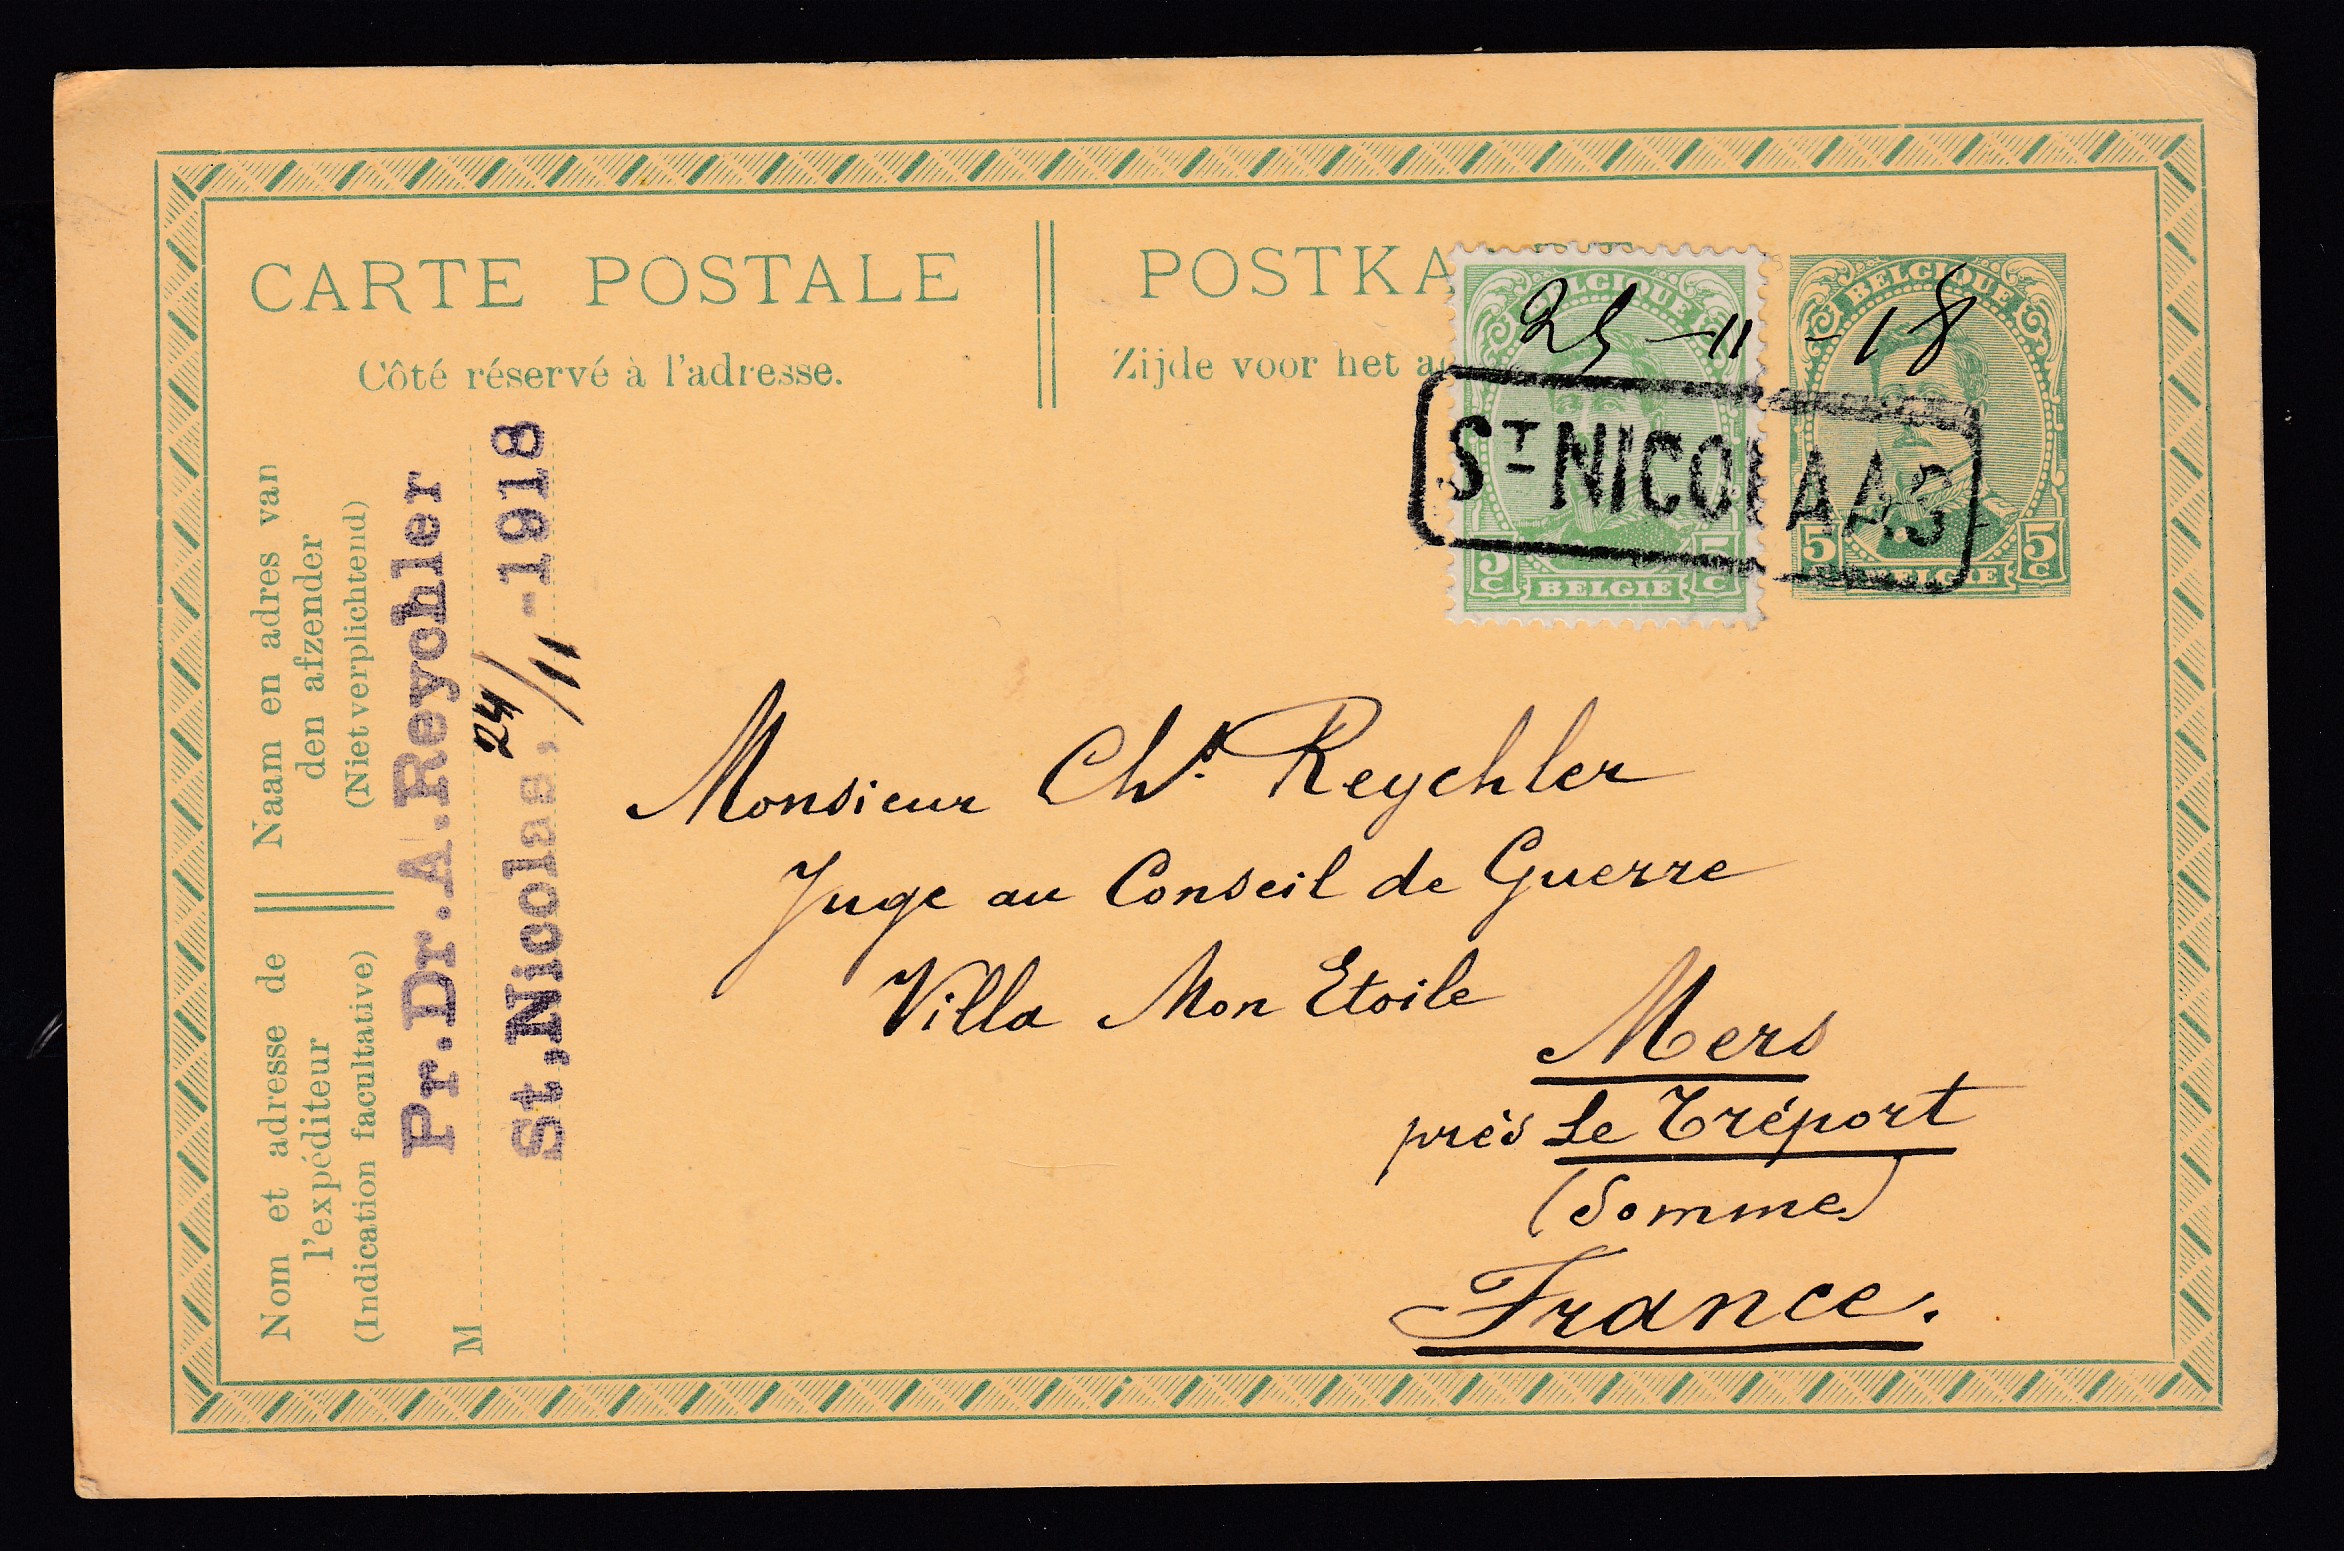 CARTE POSTALE
Côté réservé à l'adresse.
POSTKA
Zijde voor het a
BELGIQUE
5 C BELGIE 5 C
BELGIQUE
5 C BELGIE 5 C
25 - 11 - 18
ST NICOLAAS
Naam en adres van
den afzender
(Niet verplichtend)
Nom et adresse de
l'expéditeur
(Indication facultative)
M
Pr.Dr.A.Reychler
St,Nicolas, 24/11 -1918
Monsieur Chs. Reychler
Juge au Conseil de Guerre
Villa Mon Etoile
Mers
près Le Tréport
(Somme)
France.